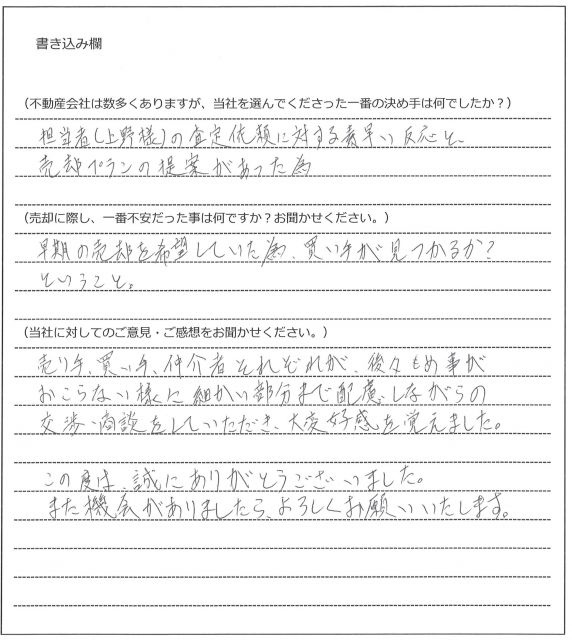 書き込み欄
(不動産会社は数多くありますが、当社を選んでくださった一番の決め手は何でしたか?)
担当者(上野様)の査定依頼に対する素早い反応と、
売却プランの提案があった為
(売却に際し、一番不安だった事は何ですか?お聞かせください。)
早期の売却を希望していた為、買い手が見つかるか?
ということ。
(当社に対してのご意見・ご感想をお聞かせください。)
売り手、買い手、仲介者それぞれが、後々もめ事が
おこらない様に細かい部分まで配慮しながらの
交渉・商談をしていただき、大変好感を覚えました。
この度は、誠にありがとうございました。
また機会がありましたら、よろしくお願いいたします。